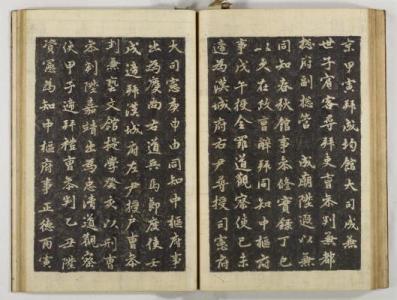 京甲寅拜成均館大司成兼
世子賓客尋拜吏曹參判兼都
摠府副摠管 成廟陞遐以兼
同知春秋館事參修實錄丁巳
以失在政言解拜同知中樞府
事戊午授全羅道觀察使己未
遞為漢城府右尹尋授司憲府
大司憲庚申由同知中樞府事
出為慶尚右道兵馬節度使壬
戌遞拜漢城府左尹授戶曹參
判兼藝文館提學癸亥以刑曹
參判陞嘉靖出為忠清道觀察
使甲子遞拜禮曹參判乙丑陞
資憲為知中樞府事正德丙寅